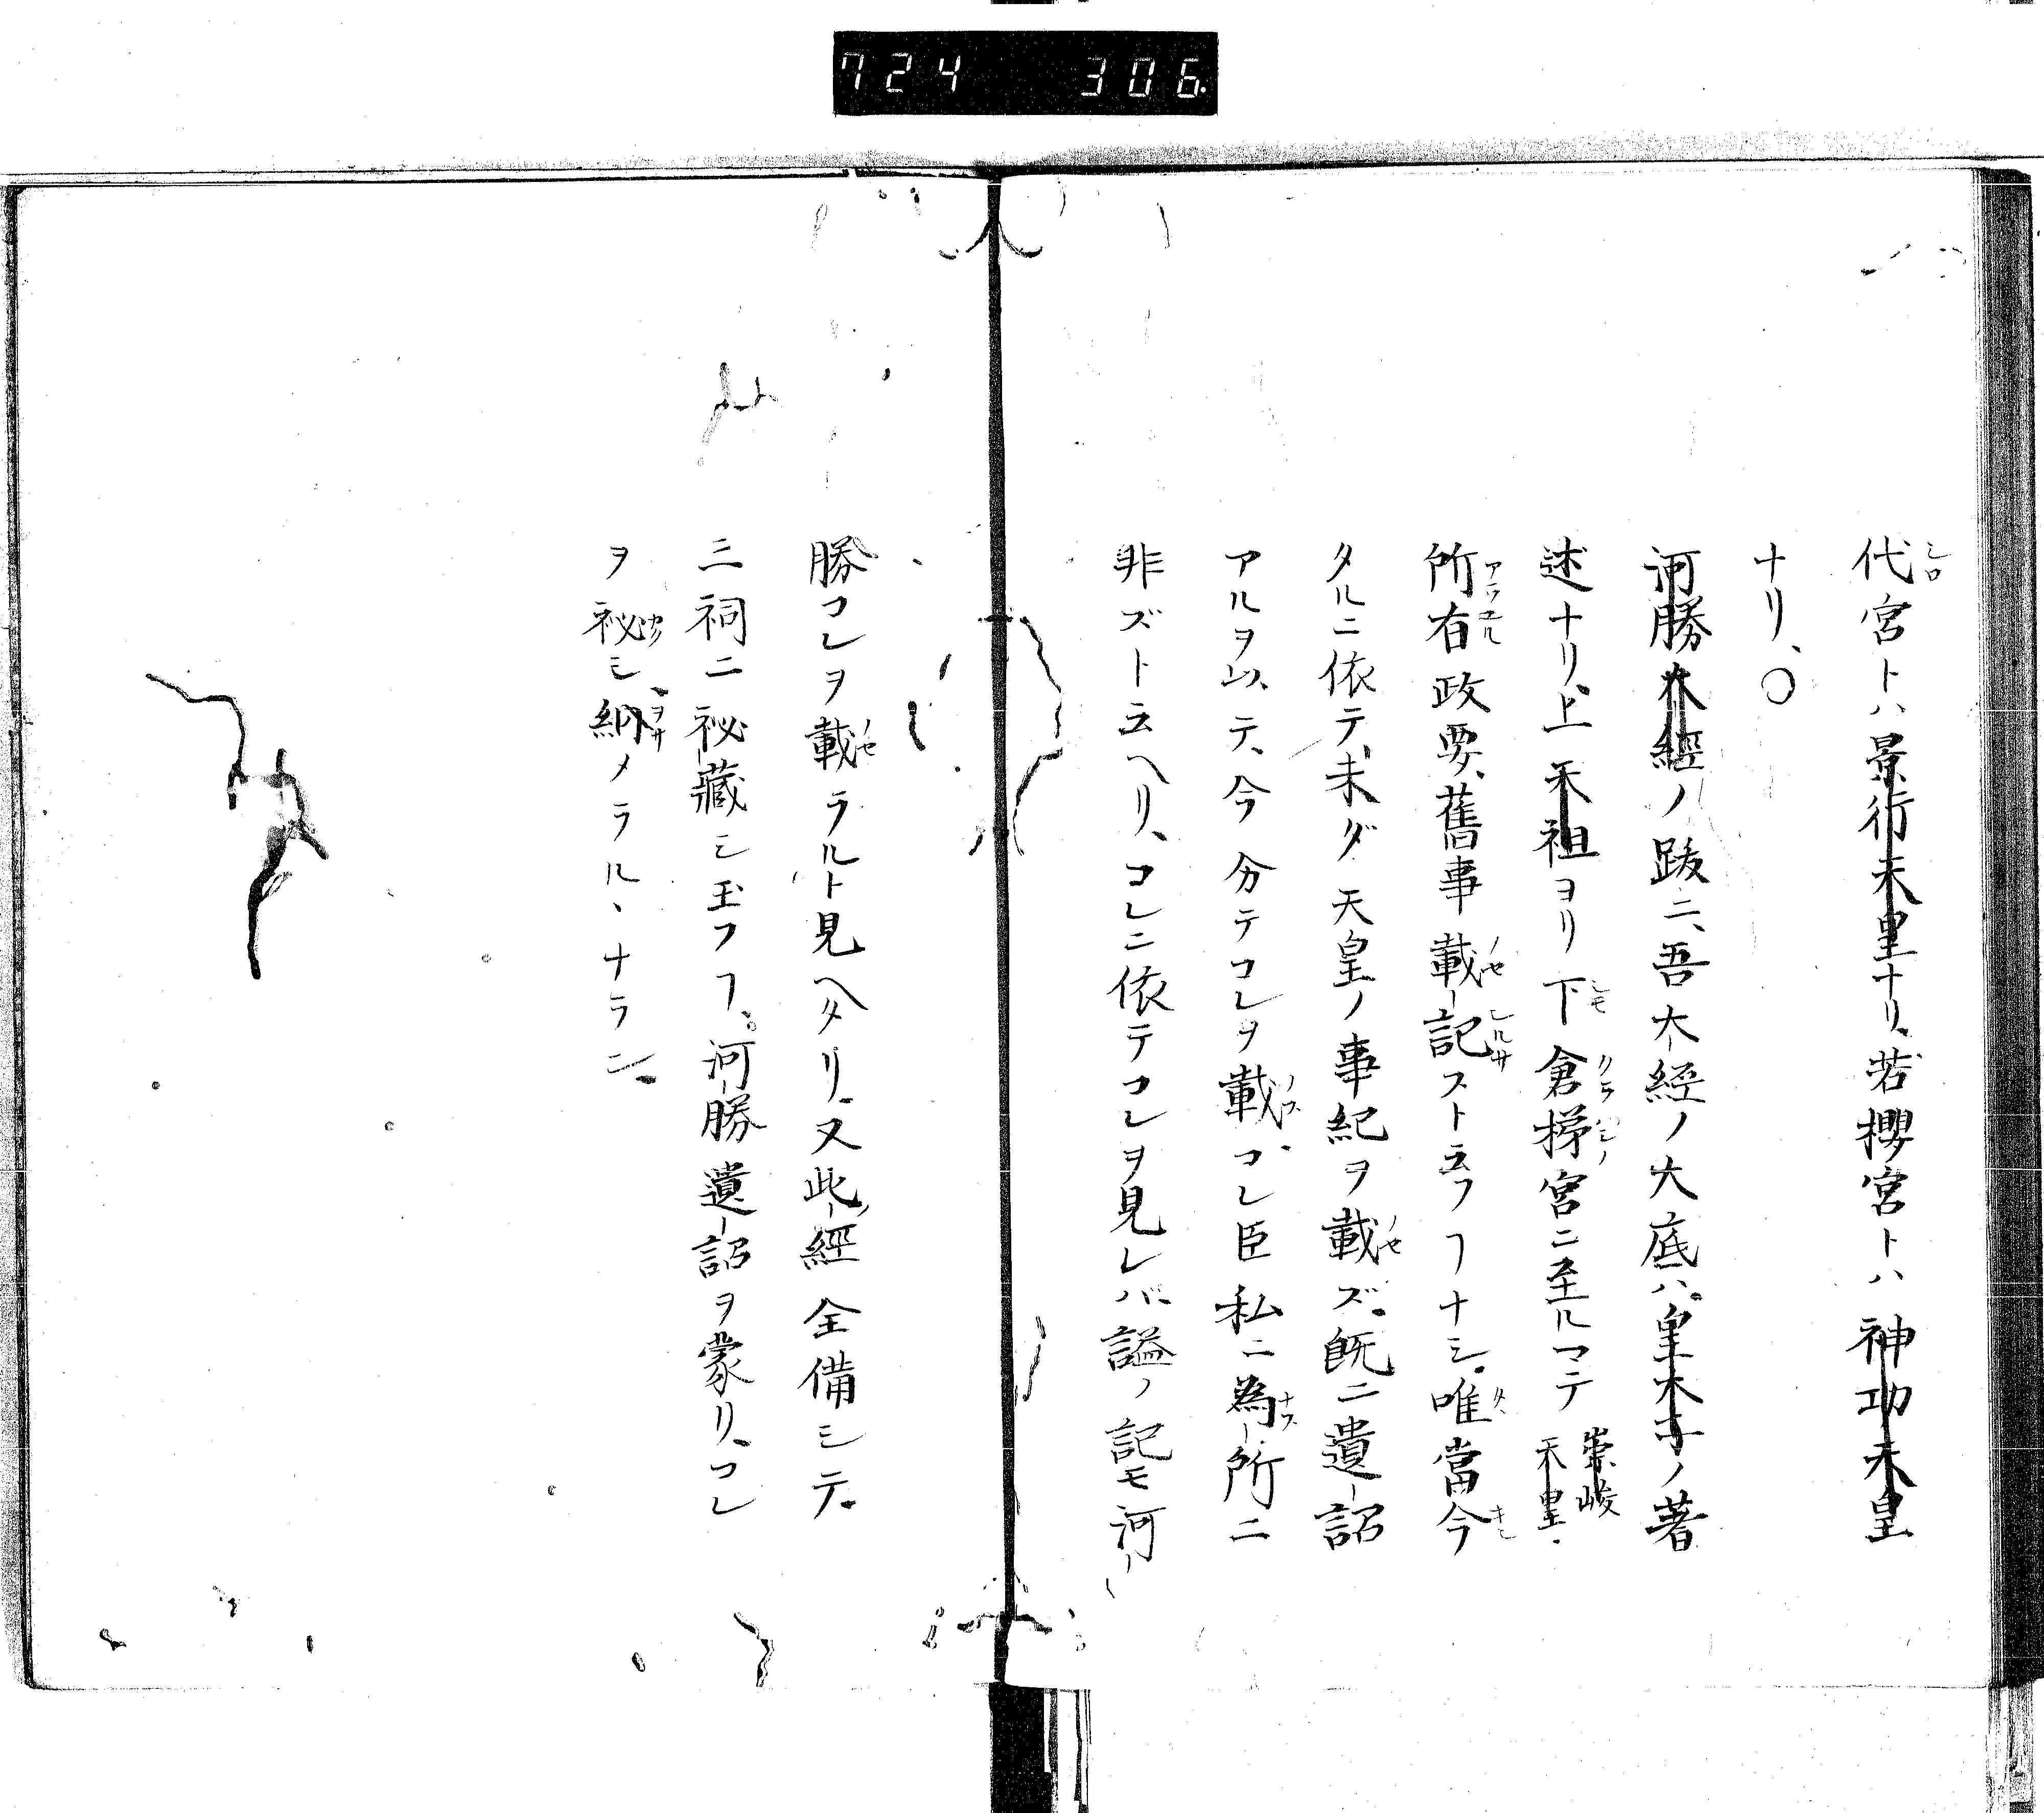 724 306.
代宮トハ景行天皇ナリ、若櫻宮トハ神功天皇
ナリ、○
河勝本經ノ跋ニ、吾大経ノ大底ハ、皇太子ノ著
述ナリ、上天祖ヨリ下倉梯宮ニ至ルマテ崇峻天皇、
所有政要、舊事載記スト云フヿナシ。唯當今
タルニ依テ、未ダ天皇ノ事紀ヲ載ズ。既ニ遺詔
アルヲ以、テ、今分テコレヲ載、コレ臣私ニ為所ニ
非ズト云ヘリ、コレニ依テコレヲ見レバ、謚ノ記モ河
勝コレヲ載ラルト見ヘタリ。又此經全備シテ。
三祠ニ祕藏シ玉フヿ、河勝遺詔ヲ蒙リ、コレ
ヲ祕シ納メラルヽナラン。